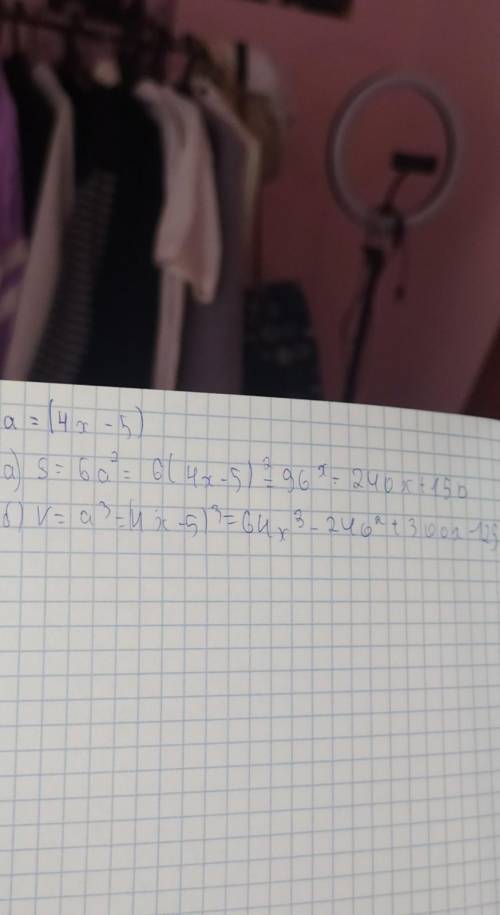 a = (4x - 5)
а) S = 6a² = 6(4x-5)² = 96ˣ = 240x + 150
б) V = a³ = (4x-5)³ = 64x³ - 240² + 300x - 125